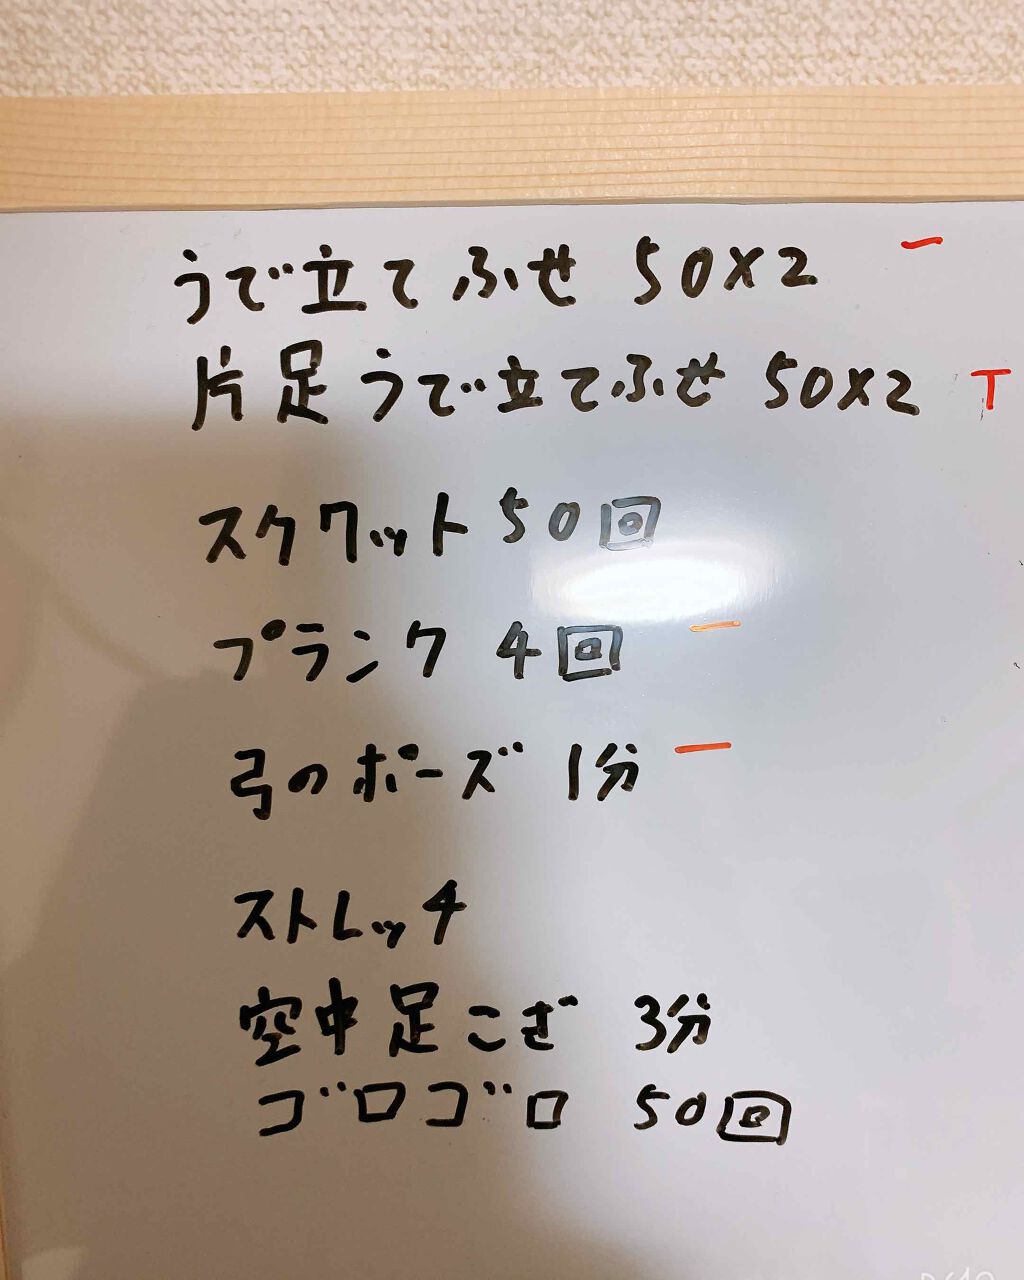 うで立てふせ 50×2 一
片足うで立てふせ 50×2 T
スクワット 50回
プランク 4回 一
弓のポーズ 1分 一
ストレッチ
空中足こぎ 3分
ゴロゴロ 50回